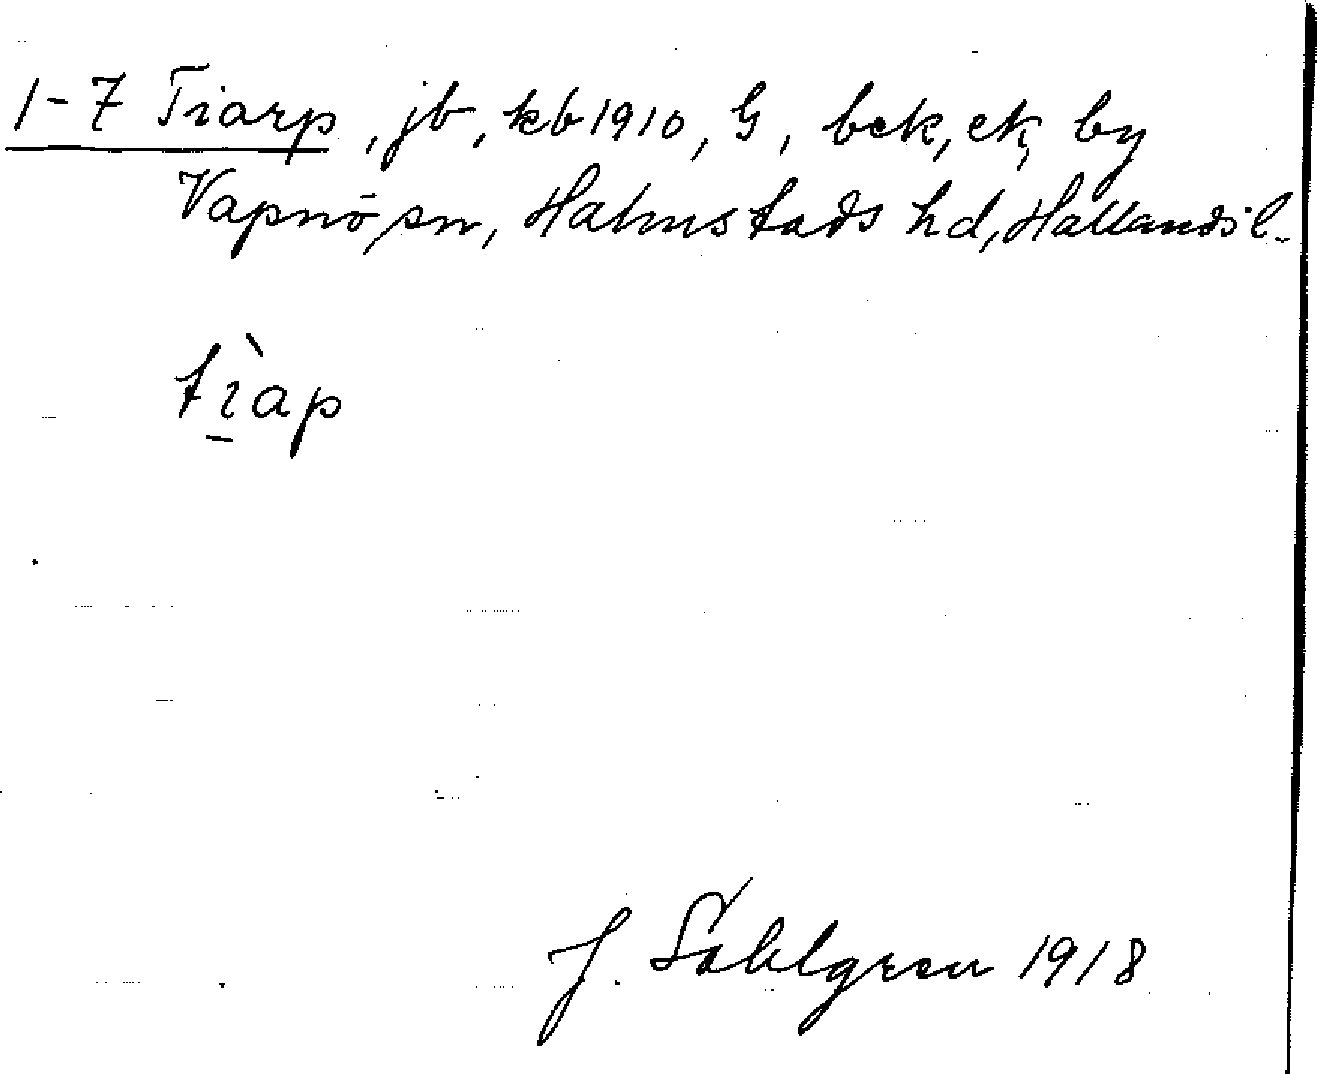 1-7 Tiarp, jb, kb 1910, G, bek, ek, by
Vapnö sn, Halmstads hd, Hallands l.
tìap
J. Sahlgren 1918